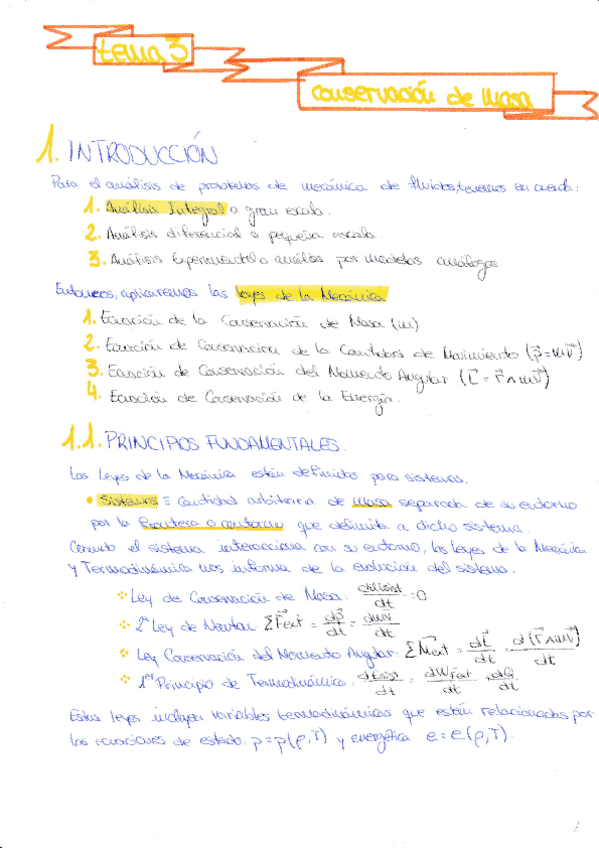 tema 3
conservación de masa
1. INTRODUCCIÓN
Para el análisis de problemas de mecánica de fluidos, tenemos en cuenta:
1. Análisis Integral o gran escala.
2. Análisis diferencial o pequeña escala.
3. Análisis Experimental o análisis por modelos análogos
Entonces, aplicaremos las leyes de la Mecánica
1. Ecuación de la Conservación de Masa (m)
2. Ecuación de Conservación de la Cantidad de Movimiento (p⃗=mv⃗)
3. Ecuación de Conservación del Momento Angular (L⃗ = r⃗ ∧ mv⃗)
4. Ecuación de Conservación de la Energía.
1.1. PRINCIPIOS FUNDAMENTALES.
Las leyes de la Mecánica están definidas para sistemas.
• Sistemas ≡ Cantidad arbitraria de masa separada de su entorno
por la frontera o contorno que delimita a dicho sistema.
Cuando el sistema interacciona con su entorno, las leyes de la Mecánica
y Termodinámica nos informa de la evolución del sistema.
Ley de Conservación de Masa: dMsist/dt = 0
2ª Ley de Newton: ΣF⃗ext = dp⃗/dt = dmv⃗/dt
Ley Conservación del Momento Angular: ΣM⃗ext = dL⃗/dt = d(r⃗∧mv⃗)/dt
1er Principio de Termodinámica: dEsist/dt = dWFext/dt + dQ/dt
Estas leyes incluyen variables termodinámicas que están relacionadas por
las ecuaciones de estado: p=p(ρ,T) y energética e=e(ρ,T).